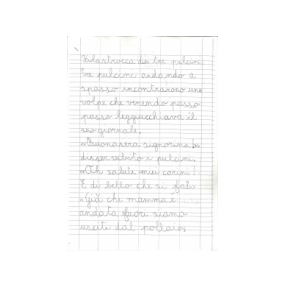 Filastrocca dei tre pulcini
Tre pulcini andando a
spasso incontrarono una
volpe che venendo passo
passo leggiucchiava il
suo giornale.
«Buonasera signorina»
disser subito i pulcini.
«Oh salute miei carini
E di bello che si fa?»
«Già che mamma è
andata fuori siamo
usciti dal pollaio»